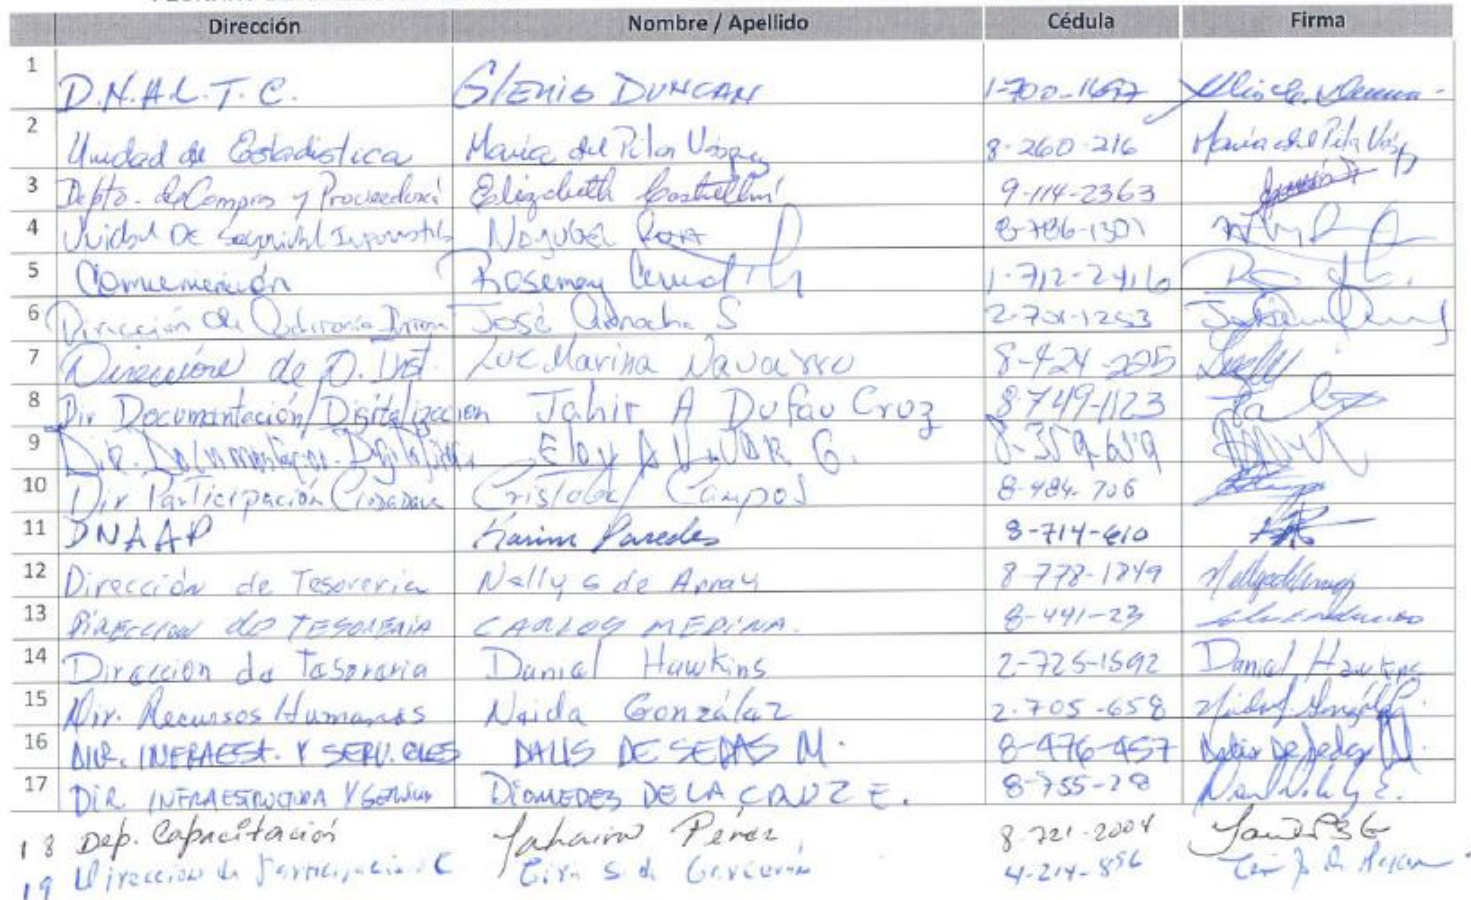 Dirección Nombre / Apellido Cédula Firma
1 D.N.A.L.T.C. Glenis DUNCAN 1-700-1697
2 Unidad de Estadistica Maria del Pilar Vásquez 8-260-216 Maria del Pilar Vásquez
3 Depto. de Compras y Proveeduria Elizabeth Castrellón 9-114-2363
4 Unidad De Seguridad Informatica 8-786-1301
5 Comunicación Rosemary 1-712-2416
6 Dirección de Auditoría Interna José S 2-701-1253
7 Direccion de D. Inst. Luz Marina Navarro 8-424-205
8 Dir Documentación/Digitalizacion Jahir A Dufau Cruz 8-749-1123
9 Dir. Documentacion. Digitalizacion Eloy G. 8-359-659
10 Dir Participación Ciudadana Cristobal Campos 8-484-706
11 DNAAP Karina Paredes 8-714-610
12 Dirección de Tesoreria Nelly S de Array 8-778-1849
13 DIRECCION de TESORERIA CARLOS MEDINA. 8-441-23
14 Direccion de Tesoreria Daniel Hawkins 2-725-1592 Daniel Hawkins
15 Dir. Recursos Humanos Neida González 2-705-658
16 DIR. INFRAEST. Y SERV. GLES DALIS DE SEDAS M. 8-476-457 Dalis De Sedas M.
17 DIR. INFRAESTRUCTURA Y DIOMEDES DE LA CRUZ E. 8-755-28
18 Dep. Capacitación Pérez 8-721-2004
19 Direccion de Participacion C S. de 4-214-856